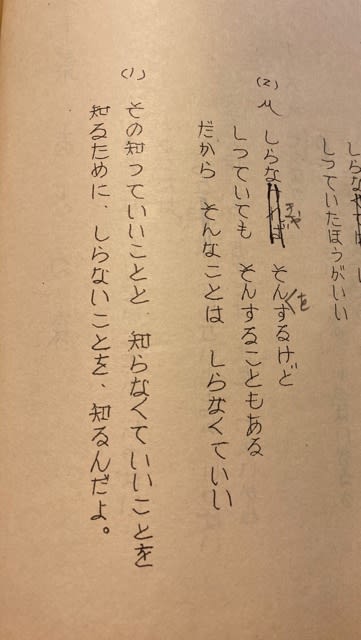 しらな
しっていたほうがいい
(2) しらなければ そんするけど
きゃ
を
しっていても そんすることもある
だから そんなことは しらなくていい
(1) その知っていいことと、知らなくていいことを
知るために、しらないことを、知るんだよ。